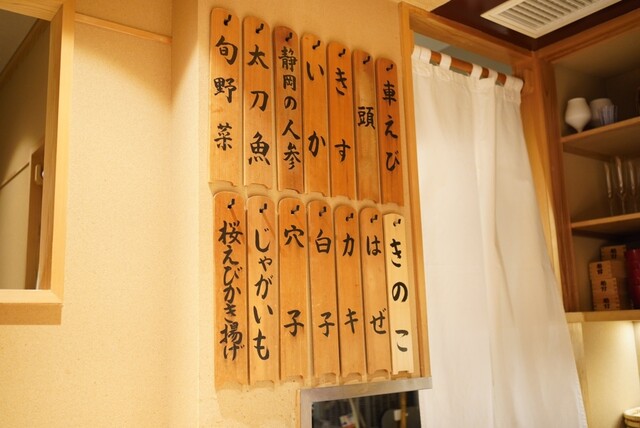 車えび
頭
きす
いか
静岡の人参
太刀魚
旬野菜
きのこ
はぜ
カキ
白子
穴子
じゃがいも
桜えびかき揚げ